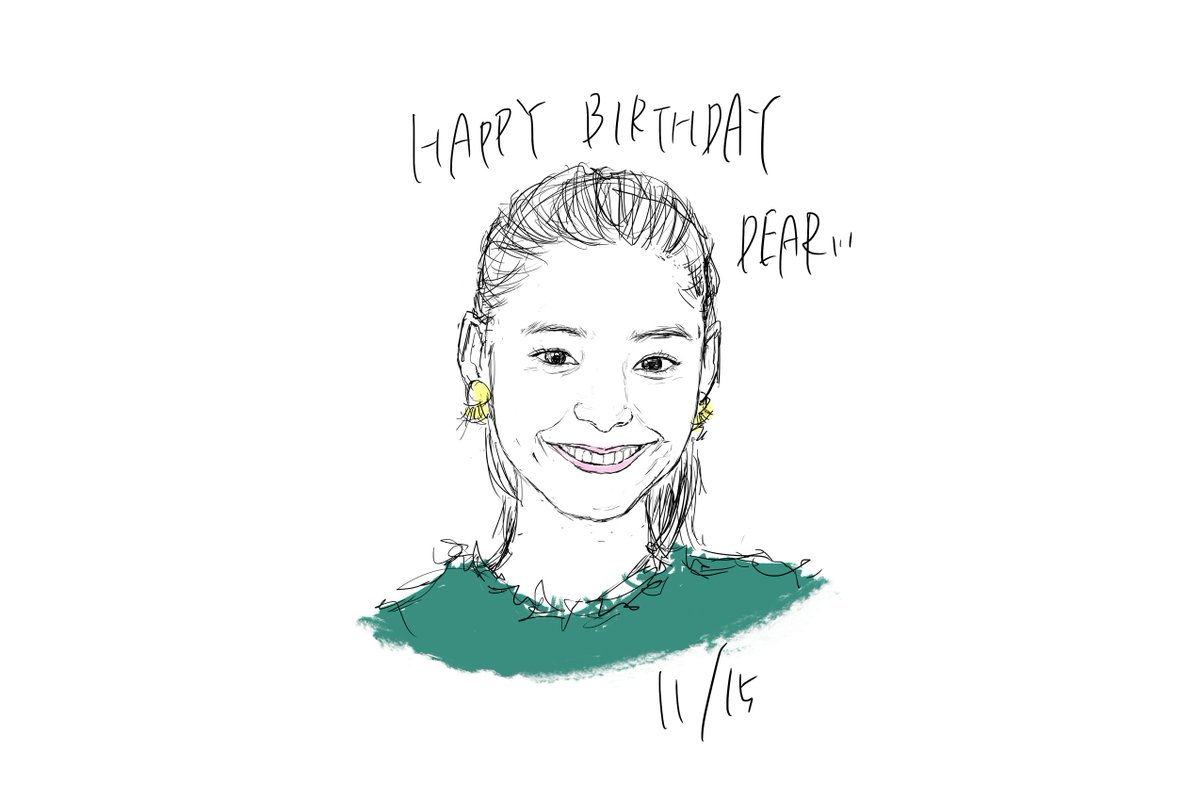 HAPPY BIRTHDAY
DEAR...
11/15